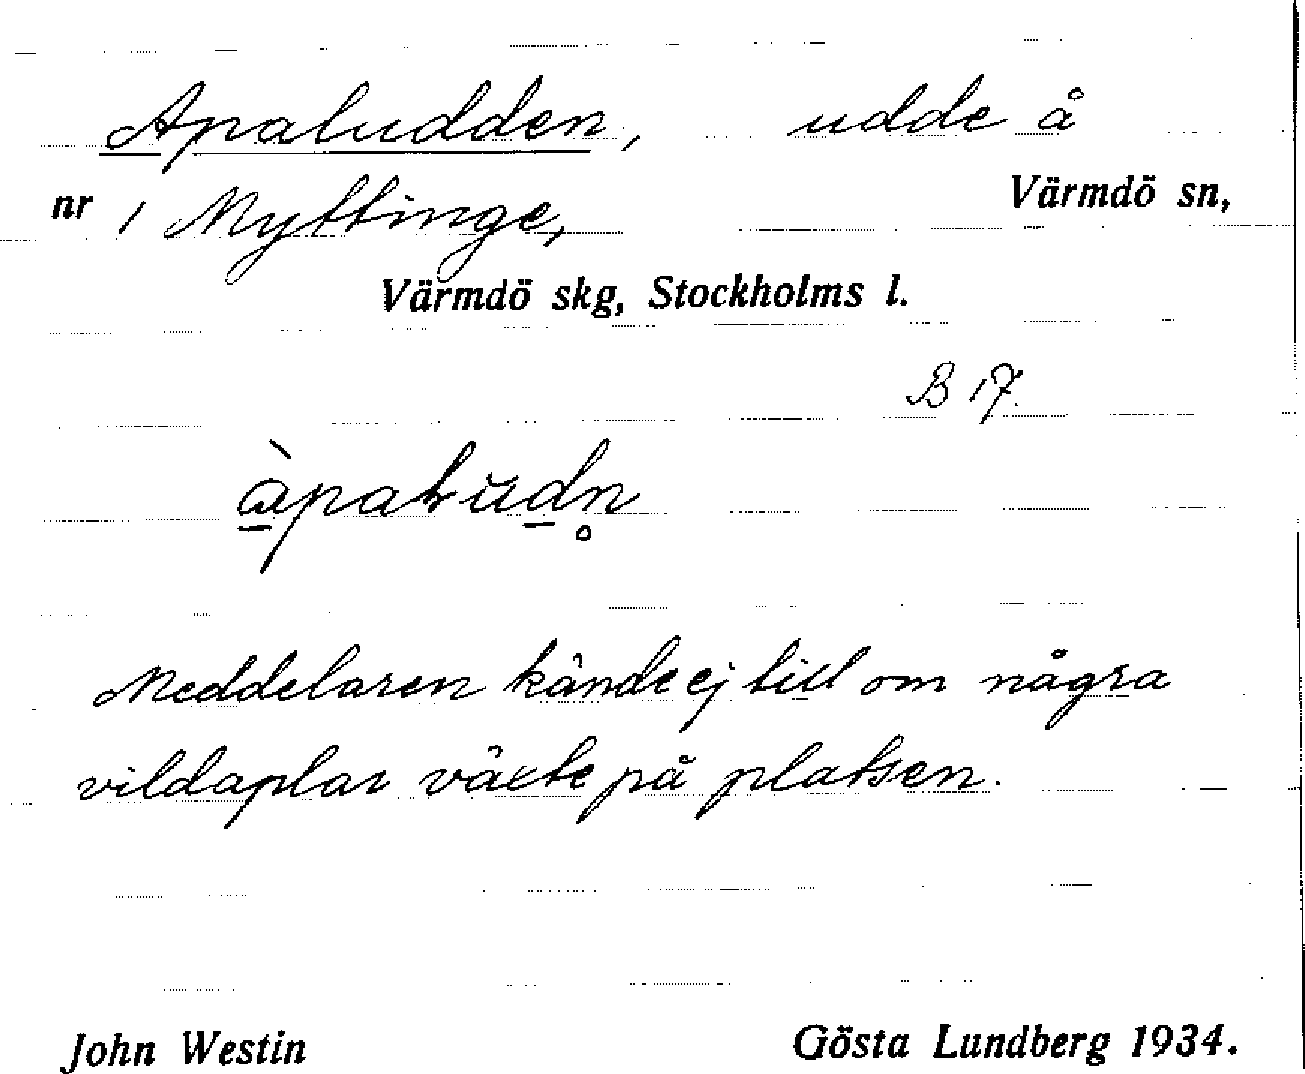 Apaludden, udde å
nr 1 Myttinge, Värmdö sn,
Värmdö skg, Stockholms l.
B 17.
Meddelaren kände ej till om några
vildaplar växte på platsen.
John Westin Gösta Lundberg 1934.